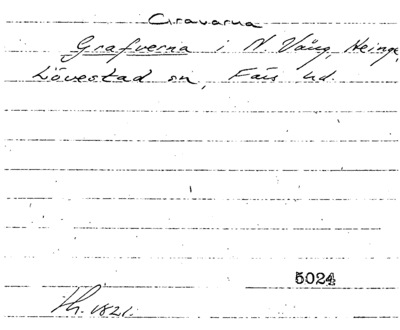 Gravarna
Grafverna i N Vång, Heinge,
Lövestad sn, Färs hd.
5024
Th. 1821.